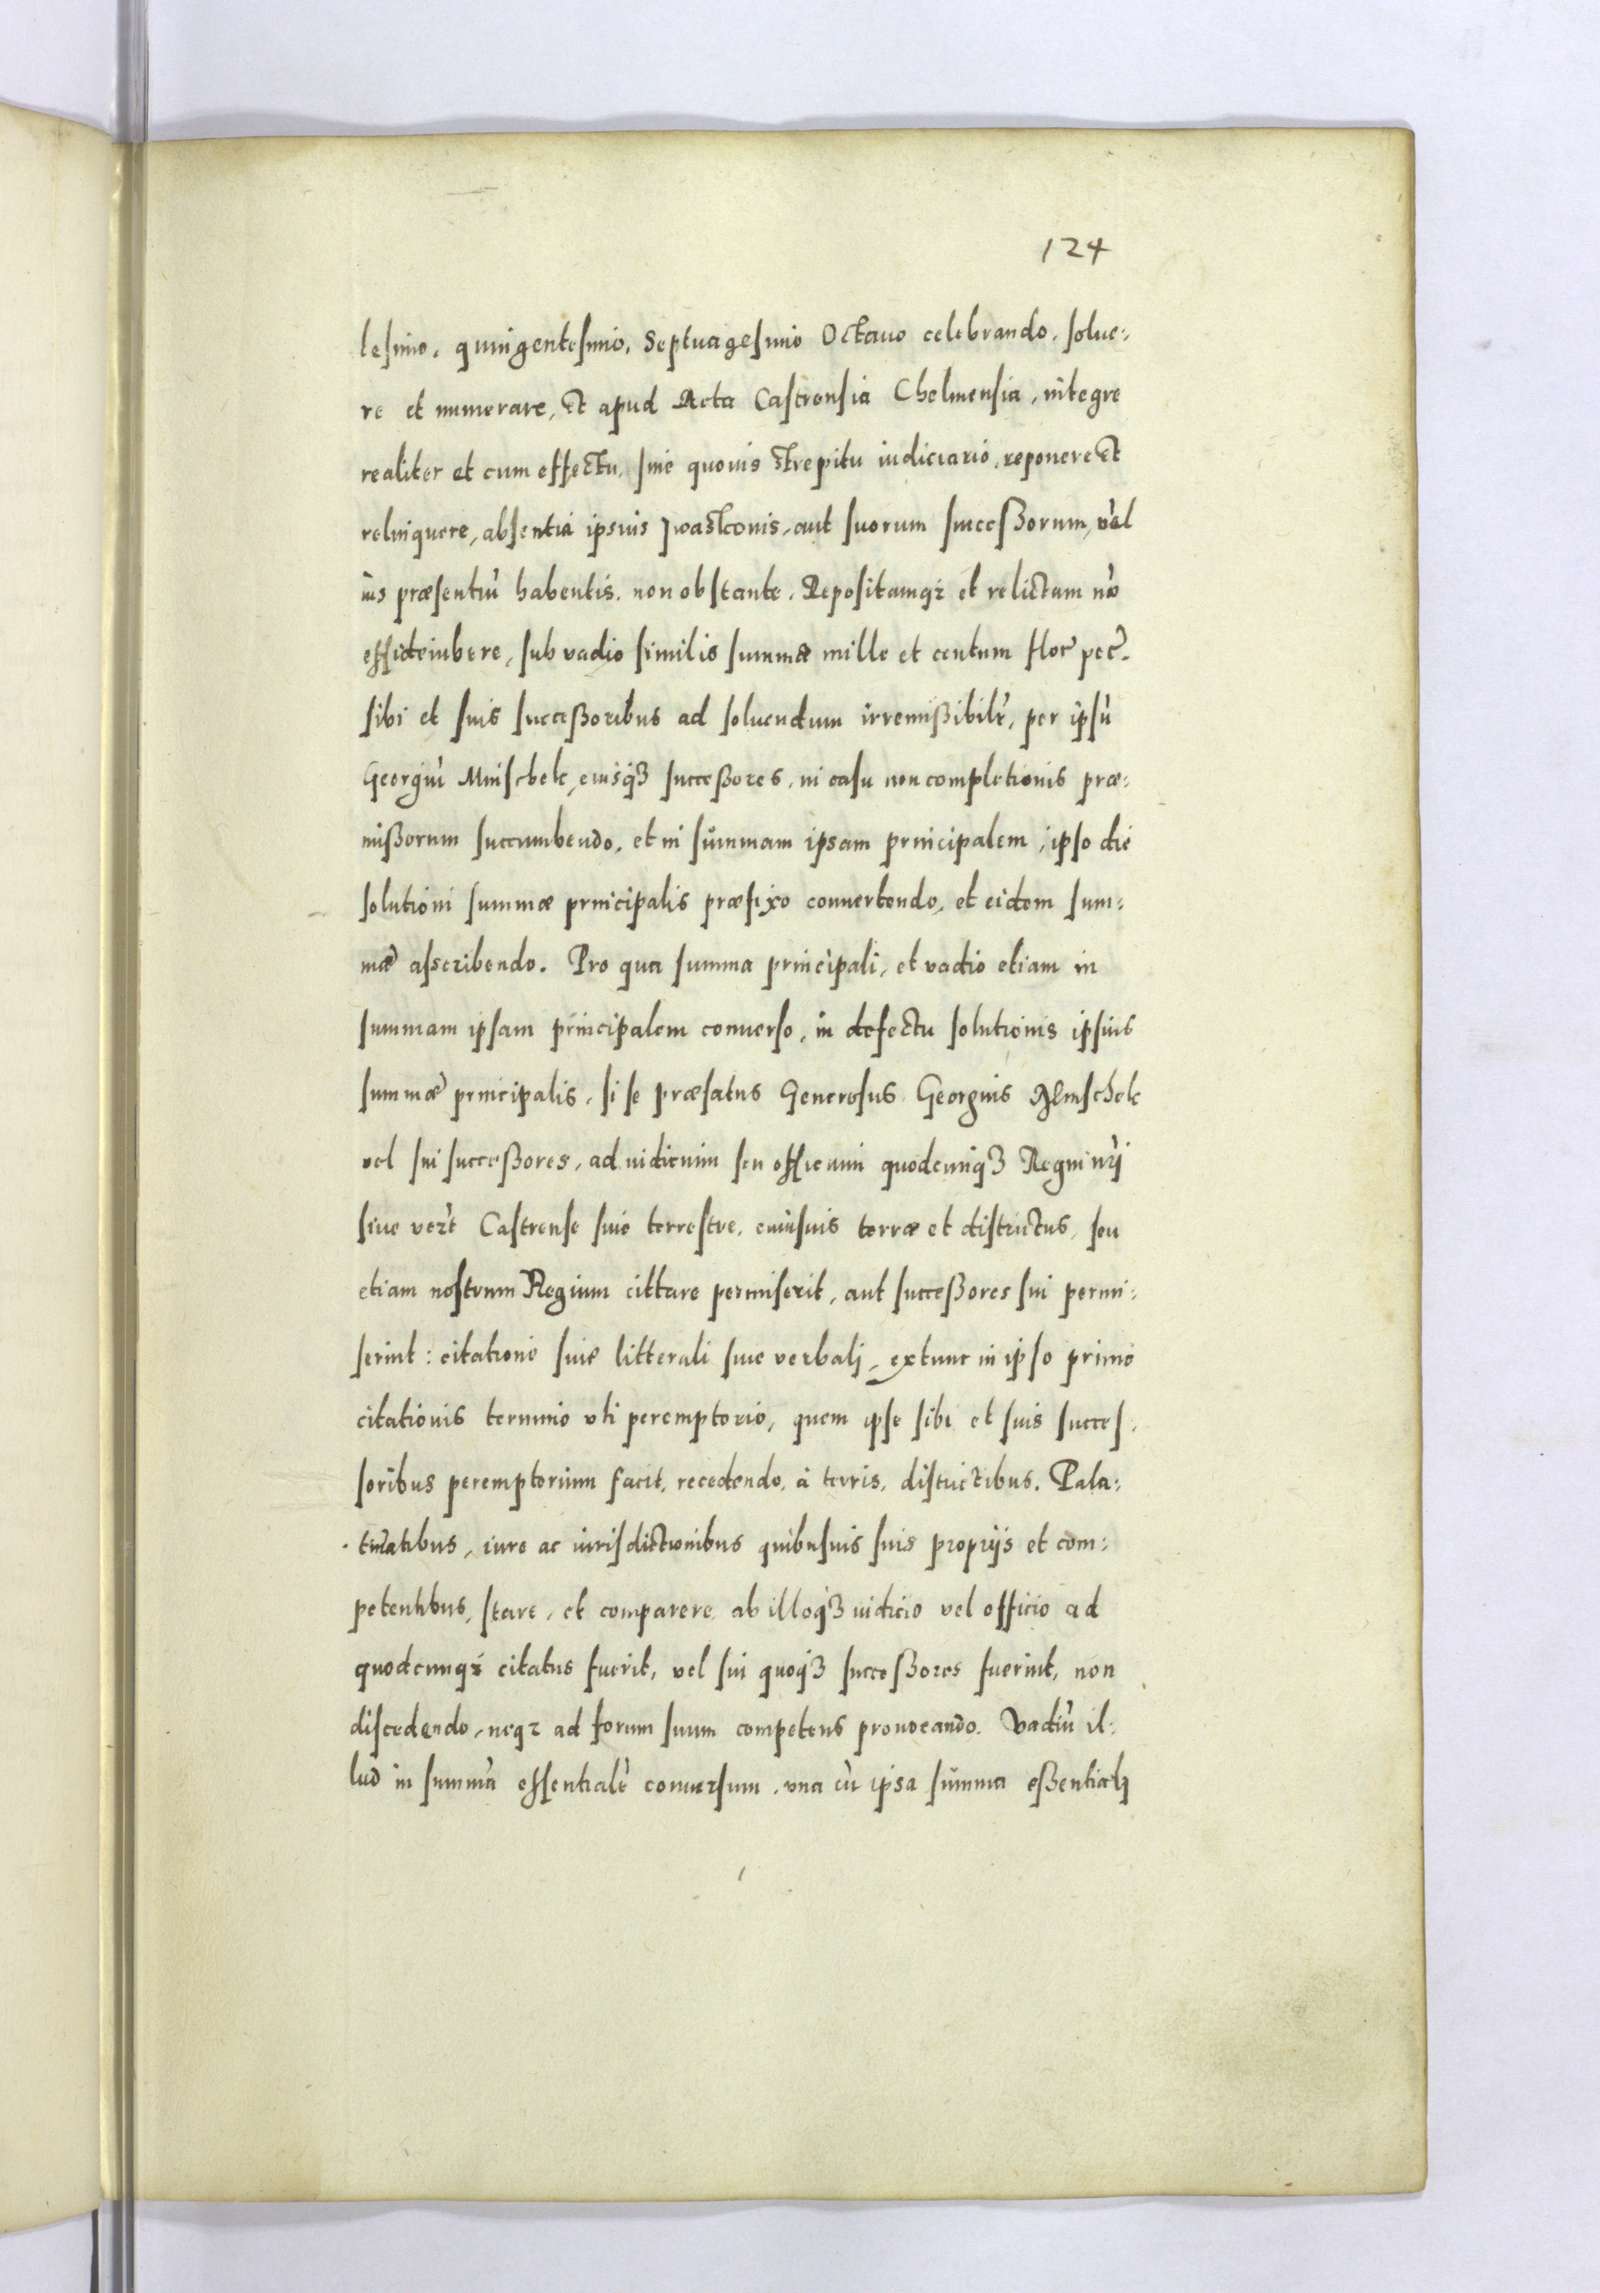 124
lesimo, quingentesimo, Septuagesimo Octauo celebrando, solue:
re et numerare, et apud Acta Castrensia Chelmensia, integre
realiter et cum effectu, sine quouis strepitu iudiciario, reponere et
relinquere, absentia ipsius Jwastconis, aut suorum successorum, vel
ius præsentiũ habentis, non obstante. Repositamqꝫ et relictam nõ
iubere, sub vadio similis summæ mille et centum flor̃ pec̃.
sibi et suis successoribus ad soluendum irremissibilr̃, per ipsũ
Georgiũ Mnischek, eiusqꝫ successores, in casu non completionis præ:
missorum succumbendo, et in summam ipsam principalem, ipso die
solutioni summæ principalis præfixo conuertendo, et eidem sum:
mæ asscribendo. Pro qua summa principali, et vadio etiam in
summam ipsam principalem conuerso, in defectu solutionis ipsius
summæ principalis, si se præfatus Generosus Georgius Mnischek
vel sui successores, ad iudicium seu officium quodcunqꝫ Regni nr̃i
siue verẽ Castrense siue terrestre, cuiusuis terræ et districtus, seu
etiam nostrum Regium cittare permiserit, aut successores sui permi:
serint: citatione siue litterali siue verbali, extunc in ipso primo
citationis termino vti peremptorio, quem ipse sibi et suis succes,
soribus peremptorium facit, recedendo, à terris, districtibus, Pala:
tinatibus, iure ac iurisdictionibus quibusuis suis proprijs et com:
petentibus, stare, et comparere ab illoqꝫ iudicio vel officio ad
quodcunqꝫ citatus fuerit, vel sui quoqꝫ successores fuerint, non
discedendo, neqꝫ ad forum suum competens prouocando. Vadiũ il:
lud in summã essentialẽ conuersum, vna cũ ipsa summa essentiali